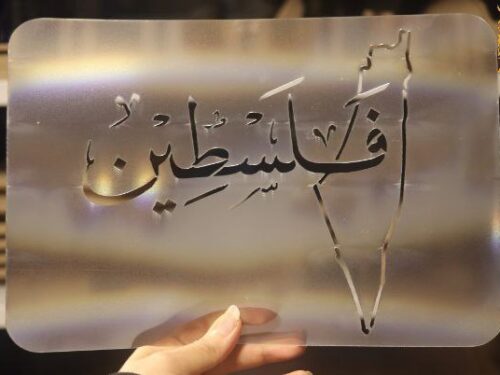 فَلَسْطِيْنُ